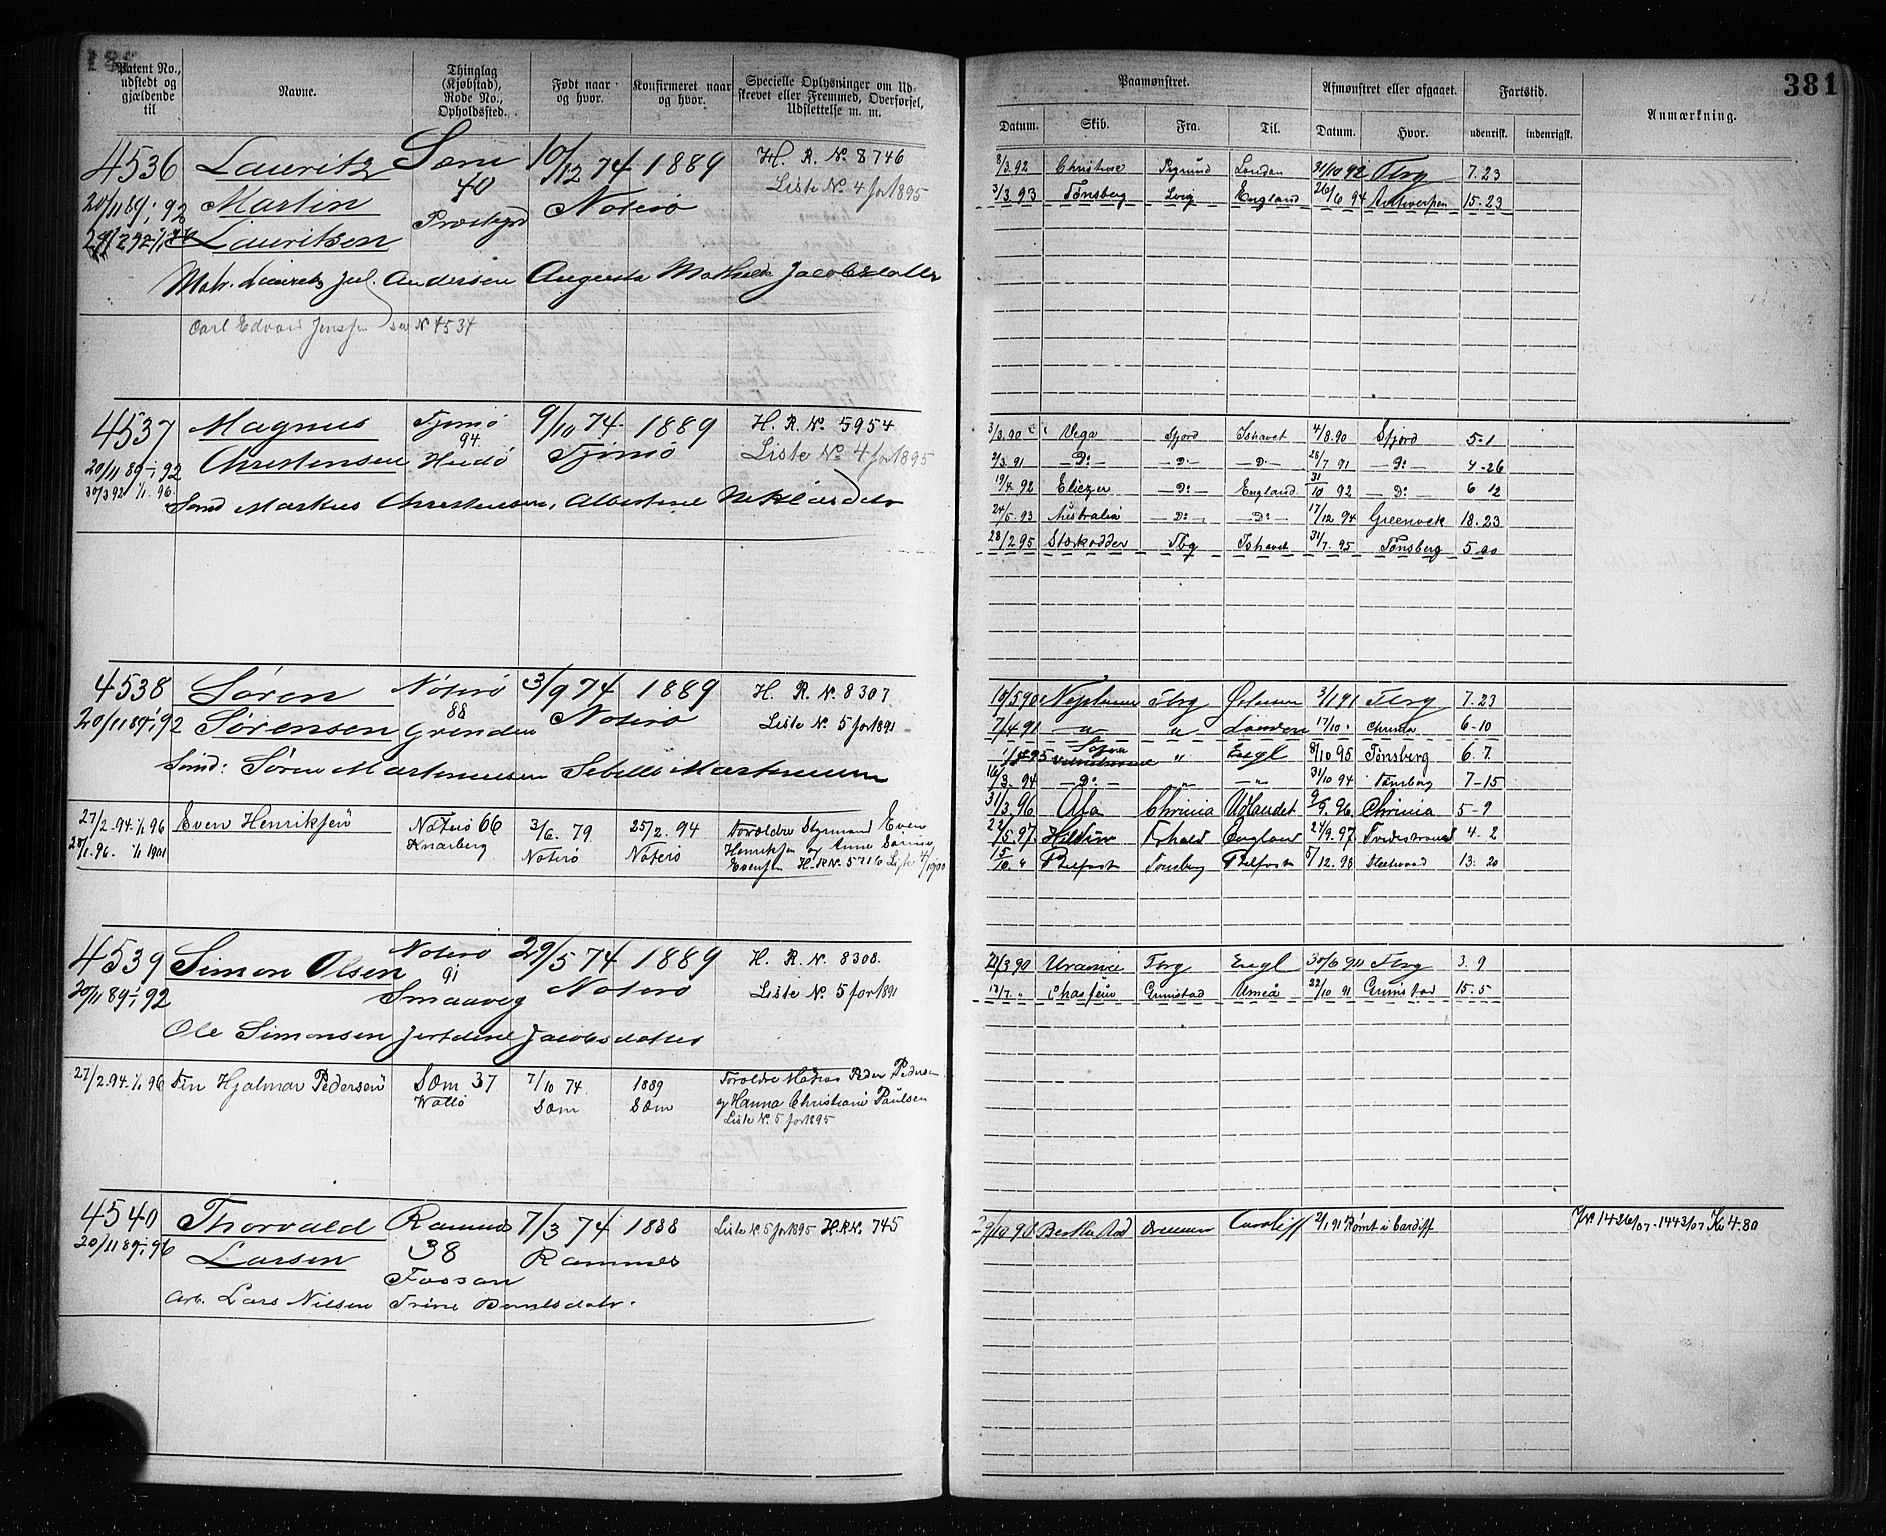 381
Patent No., udstedt og gjældende til
Navne.
Thinglag (Kjøbstad), Rode No., Opholdssted.
Født naar og hvor.
Konfirmeret naar og hvor.
Specielle Oplysninger om Udskrevet eller Fremmed, Overførsel, Udslettelse m. m.
Paamønstret.
Afmønstret eller afgaaet.
Fartstid.
Anmærkning.
Datum.
Skib.
Fra.
Til.
Datum.
Hvor.
udenrigsk.
indenrigsk.
4536 Lauritz Sem 10/12 74 1889 H. R. No 8746
40 Liste No. 4 for 1895
20/11 89-1/1 92 Martin Præstegd Nøterø
Lauritsen
Matr. Laurits Jul. Andersen Augusta Mathilde Jacobsdatter
Carl Edvard Jenssen se No 4534
8/3.92 Christine London 31/10 92 Tbrg 7.23
3/3.93 Tønsberg Lvig England 26/6 94 Antwerpen 15-23
4537 Magnus Tjømø 9/10 74 1889 H. R. No. 5954
94. Liste No. 4 for 1895
20/11 89-1/1 92 Christensen Hvidø Tjømø
30/3 92 1/1. 96.
Sømd Markus Christensen, Albertine
3/3.90 Vega Sfjord Ishavet 4/8.90 Sfjord 5-1
2/3.91 -D:- -D- -D- 28/7 91 -D:- 4-26
19/4 92 Eliezer -D:- England 31/10 92 -D:- 6 12
24/5.93 Australia -D:- -D:- 17/12 94 Greenock 18.23
28/2 95 Stærkodder Tbg Ishavet 31/7. 95 Tønsberg 5
4538 Søren Nøterø 3/9 74 1889 H. R. No. 8307
88 Liste No. 5 for 1891
20/11 89-1/1 92 Sørensen Grinden Nøterø
Sømd: Søren Martinusen Sibille
10/5 90 Neptunus Tbrg 3/1 91 Tbrg 7.23
7/4 91 -"- " London 17/10 " Chrania 6-10
" Engl 8/10 95 Tønsberg 6.7.
16/3.94 -D:- -"- -"- 31/10 94 Tønsberg 7-15
27/2.94-1/1 96 Even Henriksen Nøterø 66 3/6. 79 25/2. 94 Forældre Styrmand Even
1/1 1901 Knarberg Nøterø Nøterø Henriksen og Anne
Evensen H.R No. 5716
31/3.96 Afa Chrinia Udlandet 9/9.96 Chrinia 5-9
22/5.97 England 24/9.97 4-2
15/10." Belfast Tønsberg Belfast 5/12.98 Fleetwood 13. 20
4539 Simon Olsen Nøterø 29/5 74 1889 H. R. No. 8308.
91 Liste No. 5 for 1891
20/11 89-1/1 92 Smaaveg Nøterø
Ole Simonsen Jacobsdatter
21/3 90 Urania Tbrg Engl 30/6 90 Tbrg 3.9
Grimstad Umeå 22/10 91 Grimstad 15.5
27/2.94-1/1 96 Fin Hjalmar Pedersen Sæm 37 7/10 74 1889 Forældre Matros Peder Pedersen
Vallø Sæm Sæm og Hanna Christiane Paulsen
Liste No. 5 for 1895
4540 Thorvald Ramnes 7/3 74 1888 Liste No. 5 for 1895 H.R No. 745
20/11 89-1/1 96 Larsen 38 Ramnes
Fossan
Arb. Lars Nilsen Trine
29/10 90 Drammen Cardiff 2/1 91 Rømt i Cardiff JNo 1426/07-1443/07 K 4.80